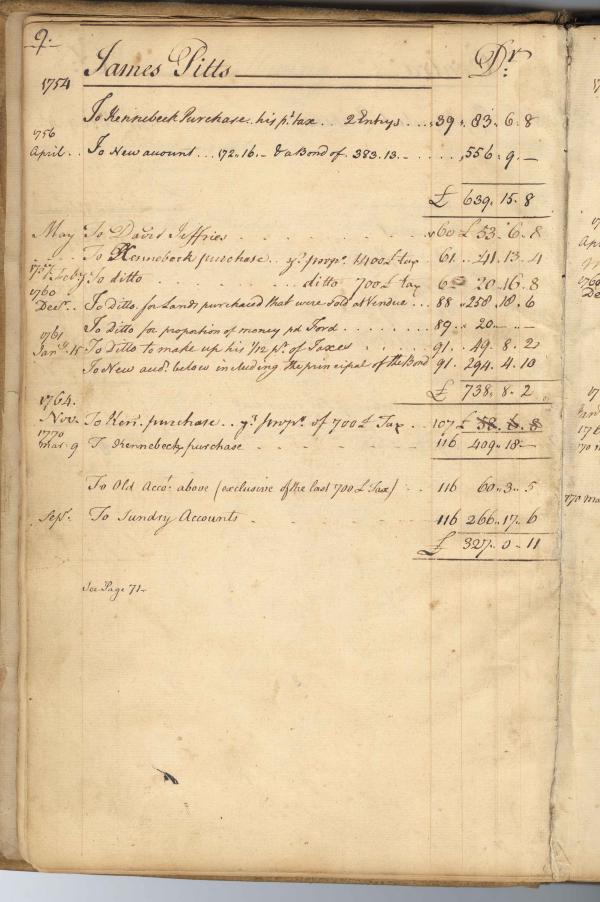 9.
James Pitts Dr:
1754
To Kennebeck Purchase his pt tax .. 2 Entrys .... 39 .. 83 .. 6 .. 8
1756
April .. To New acount ... 172 .. 16 .. – & a Bond of .. 383 .. 13 .. – .... 556 .. 9 .. –
£ 639 .. 15 .. 8
May To David Jeffries ..... 60 £ 53 .. 6 .. 8
.. To Kennebeck purchase .. yr propn. 1400 £ tax 61 .. 41 .. 13 .. 4
1757 Feby To ditto ..... ditto 700 £ tax 20 .. 16 .. 8
1760
Decr. .. To Ditto for Lands purchased that were sold at Vendue .. 88 .. 258 .. 18 .. 6
To Ditto for proportion of money pd Ford ..... 89 .. 20 .. – .. –
1761
Jany. 15 To Ditto to make up his 1/12 pt. of Taxes .... 91 .. 49 .. 8 .. 2
To New acct. below including the principal of the Bond 91 .. 294 .. 4 .. 10
£ 738 .. 8 .. 2
1764.
Nov. To Ken. purchase .. yr propn. of 700 £ Tax .. 107 £ 8
1770
Mar: 9 To Kennebeck purchase ..... 116 409 .. 18 .. –
To Old Acct. above (exclusive of the last 700 £ Tax) .. 116 60 .. 3 .. 5
Sepr. To Sundry Accounts ..... 116 266 .. 17 .. 6
£ 327 .. 0 .. 11
See Page 71